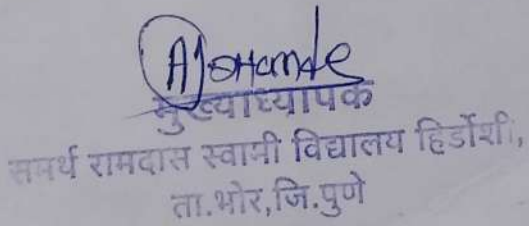 मुख्याध्यापक
समर्थ रामदास स्वामी विद्यालय हिर्डोशी,
ता.भोर,जि.पुणे